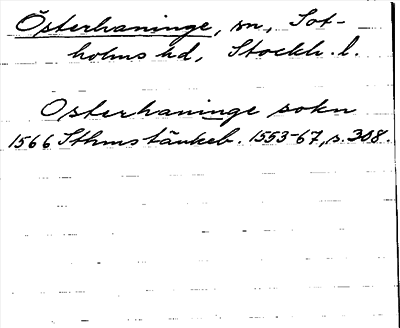 Österhaninge, sn, Sot-
holms hd, Stockh. l.
Osterhaninge sokn
1566 Sthms tänkeb. 1553-67, s. 308.